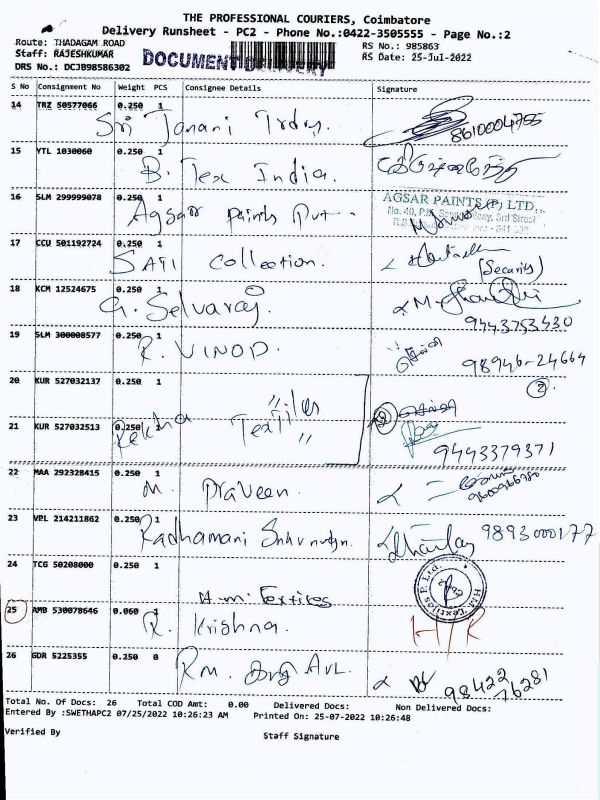 THE PROFESSIONAL COURIERS, Coimbatore
Delivery Runsheet - PC2 - Phone No.:0422-3505555 - Page No.:2
Route: THADAGAM ROAD
RS No.: 985863
Staff: RAJESHKUMAR
RS Date: 25-Jul-2022
DRS No.: DCJB98586302
DOCUMENT DELIVERY
S No Consignment No Weight PCS Consignee Details Signature
14 TRZ 50577066 0.250 1
Sri Janani Trdrs. 8610004755
15 YTL 1030060 0.250 1
B. Tex India.
16 SLM 299999078 0.250 1
Agsar Paints Pvt.
AGSAR PAINTS (P) LTD.
No. 40, 3rd Street
17 CCU 501192724 0.250 1
SATI Collection. (Security)
18 KCM 12524675 0.250 1
G. Selvaraj. 9443753430
19 SLM 300008577 0.250 1
R. VINOD. 98946-24664
20 KUR 527032137 0.250 1
2
21 KUR 527032513 0.250 1
Rekha Textiles
9443379371
22 MAA 292328415 0.250 1
M. Praveen.
23 VPL 214211862 0.250 1
Radhamani 9893000177
24 TCG 50208000 0.250 1
H.M. Textiles
25 AMB 530078646 0.060 1
R. Krishna. H/R
26 GDR 5225355 0.250 0
RM. AVL. 98422 76281
Total No. Of Docs: 26 Total COD Amt: 0.00 Delivered Docs: Non Delivered Docs:
Entered By :SWETHAPC2 07/25/2022 10:26:23 AM Printed On: 25-07-2022 10:26:48
Verified By Staff Signature